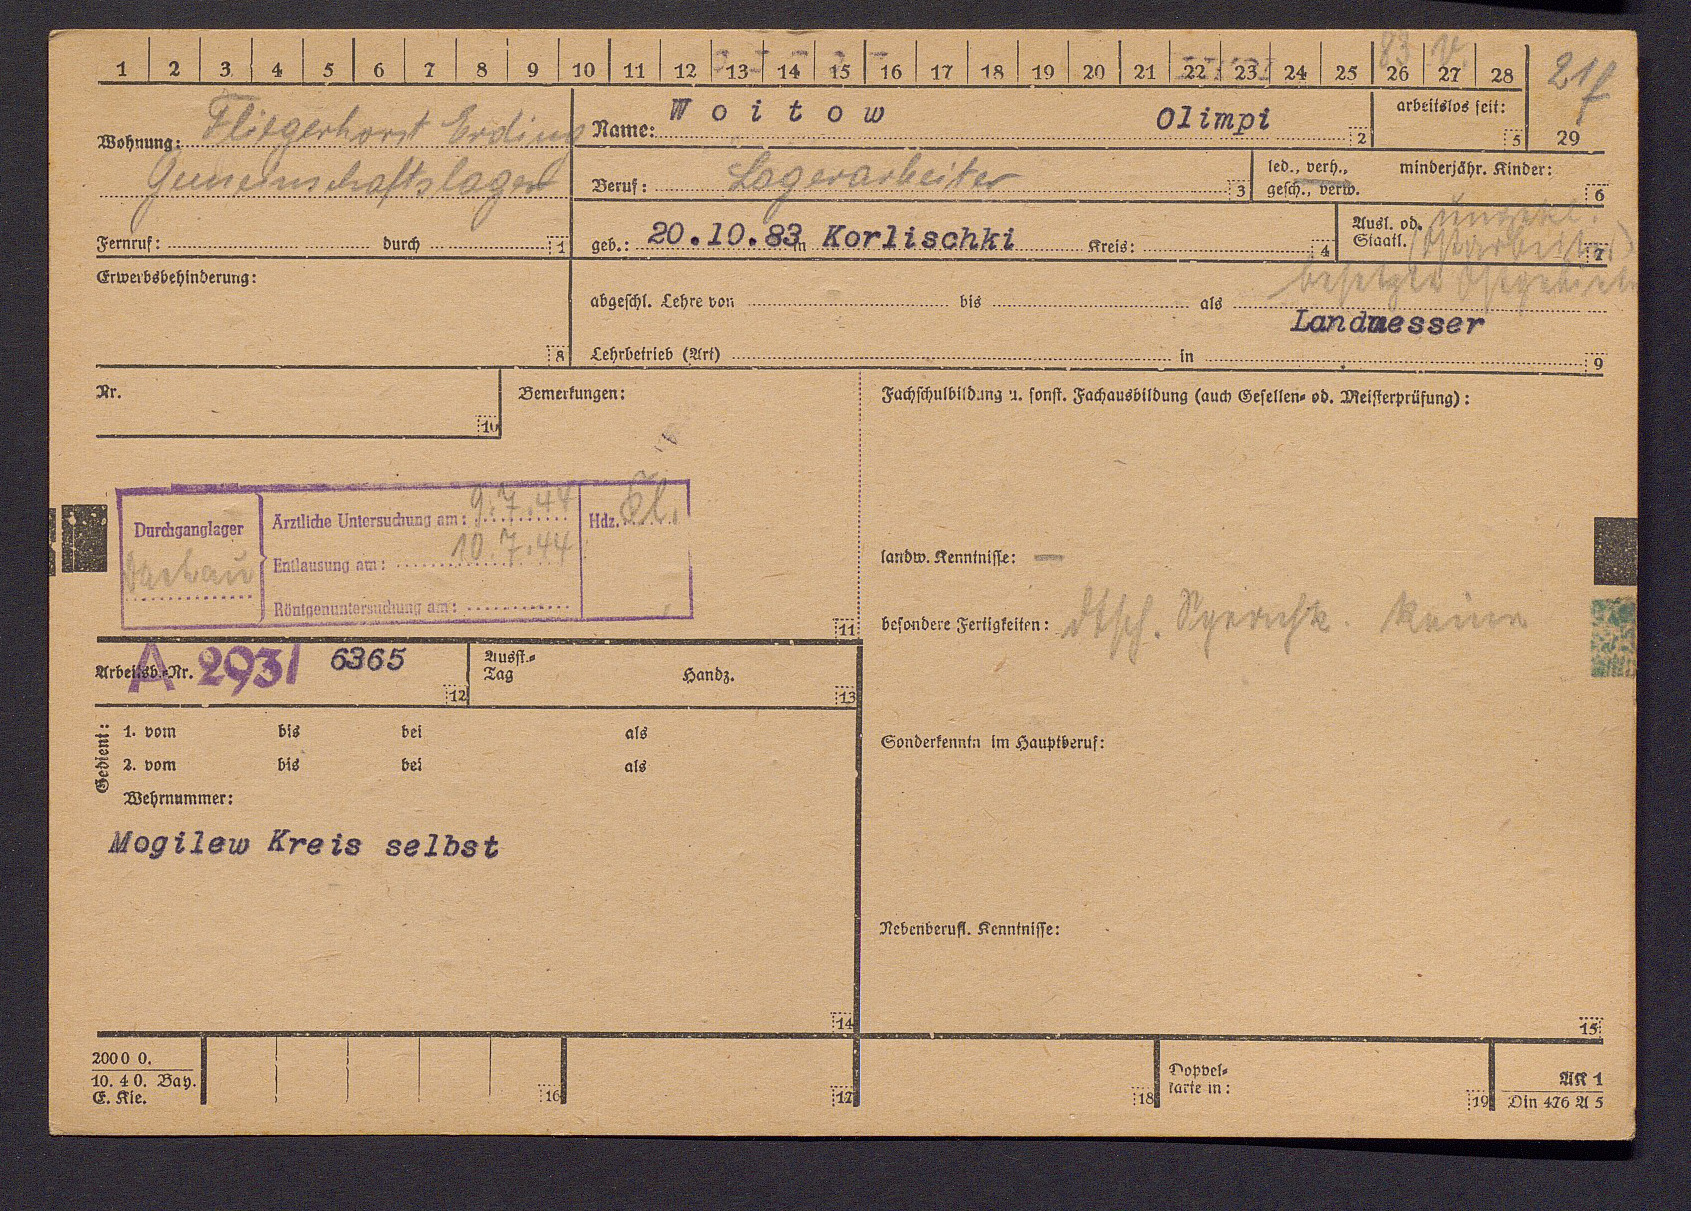 1 2 3 4 5 6 7 8 9 10 11 12 13 14 15 16 17 18 19 20 21 22 23 24 25 26 27 28
83 V. 21 f
29
Wohnung: Fliegerhorst Erding
Gemeinschaftslager
Fernruf: durch 1
Name: Woitow Olimpi 2
arbeitslos seit: 5
Beruf: Lagerarbeiter 3
led., verh., gesch., verw.
minderjähr. Kinder: 6
geb.: 20.10.83 in Korlischki Kreis: 4
Ausl. od. Staatl. ungekl. 7
(Ostarbeiter)
besetzte Ostgebiete
Erwerbsbehinderung: 8
abgeschl. Lehre von bis als
Landmesser
Lehrbetrieb (Art) in 9
Nr. 10
Bemerkungen:
Fachschulbildung u. sonst. Fachausbildung (auch Gesellen- od. Meisterprüfung):
Durchganglager
Dachau
Ärztliche Untersuchung am: 9.7.44
Entlausung am: 10.7.44
Röntgenuntersuchung am:
Hdz.
11
landw. Kenntnisse: —
besondere Fertigkeiten: dtsch. Sprachk. keine
Arbeitsb.-Nr. A 2931 6365 12
Ausst.-Tag Handz. 13
Gedient:
1. vom bis bei als
2. vom bis bei als
Wehrnummer:
Mogilew Kreis selbst
14
Sonderkenntn im Hauptberuf:
Nebenberufl. Kenntnisse:
15
2000 0.
10. 40. Bay.
E. Kle.
16 17 18
Doppelkarte in: 19
AK 1
Din 476 A 5